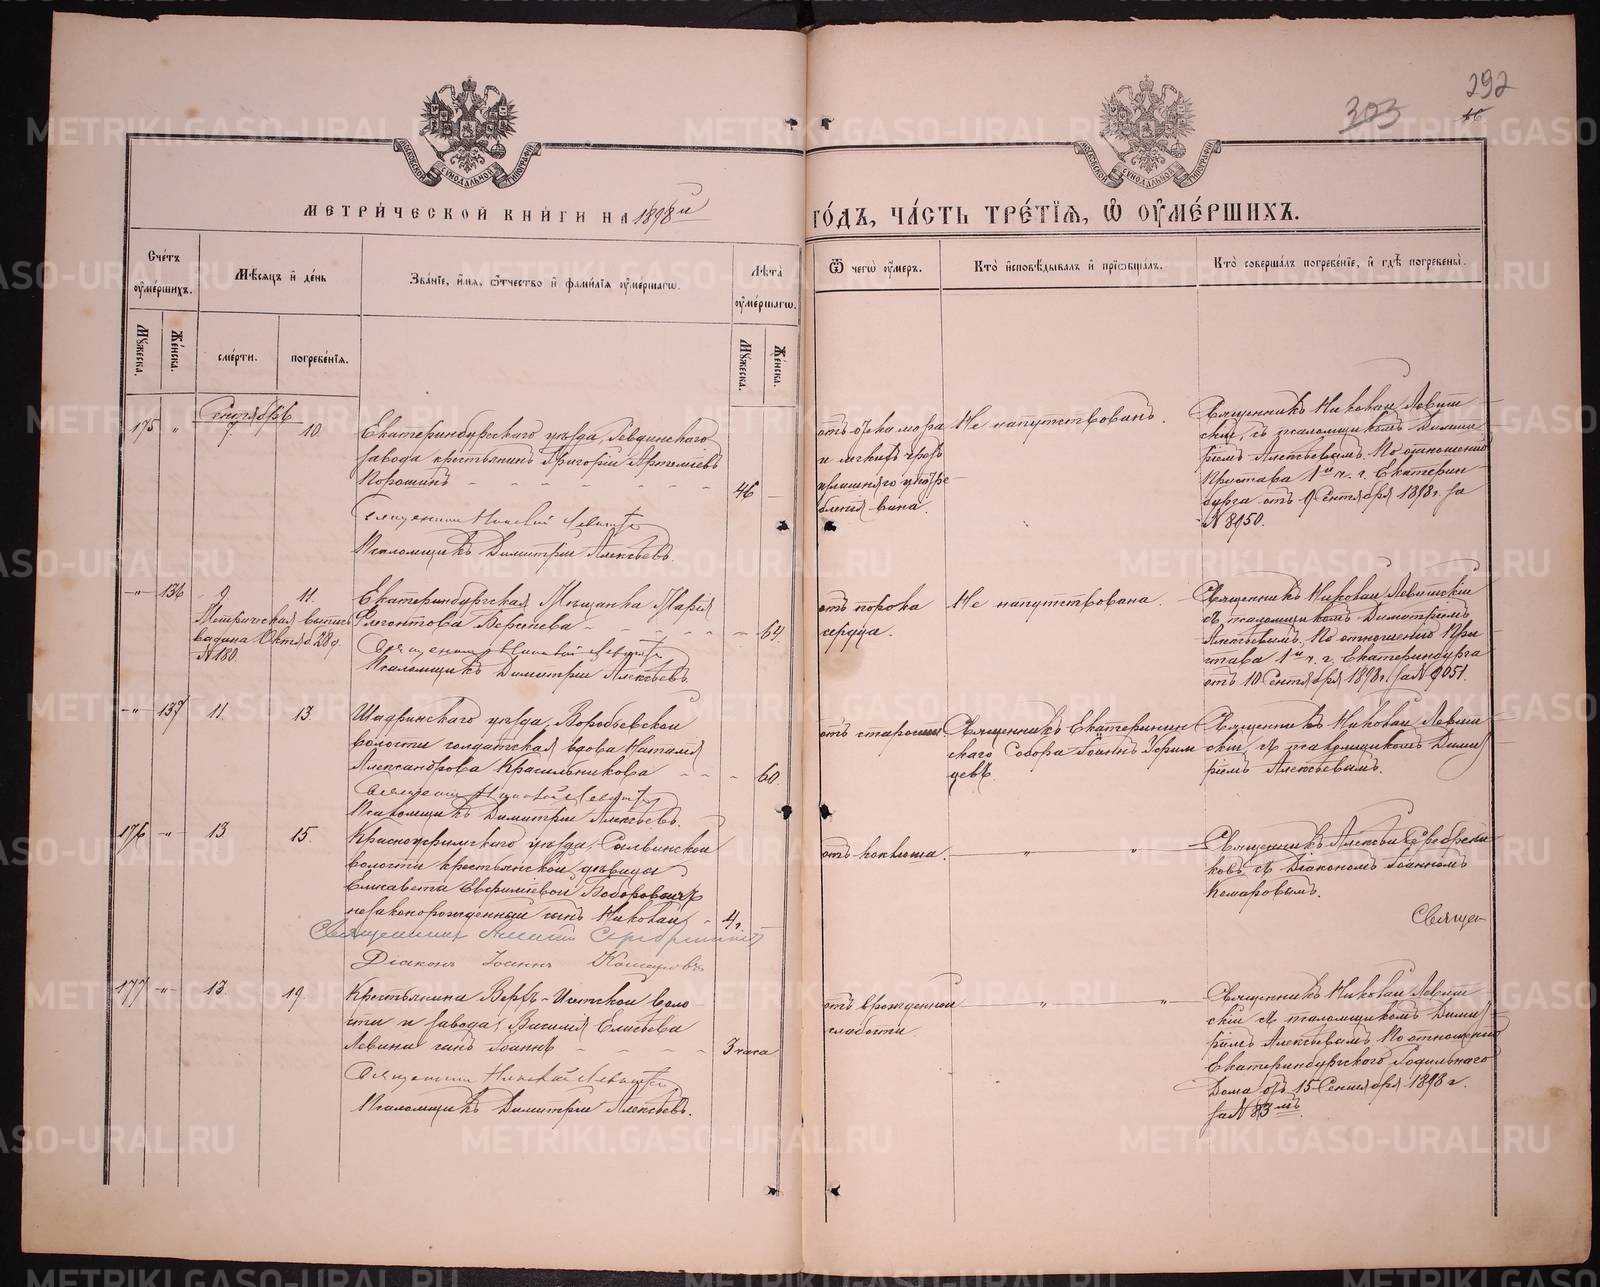 292
303
МОСКОВСКОЙ СѴНОДАЛЬНОЙ ТИПОГРАФІИ
МОСКОВСКОЙ СѴНОДАЛЬНОЙ ТИПОГРАФІИ
МЕТРИ́ЧЕСКОЙ КНИ́ГИ НА 1898й
ГО́ДЪ, ЧА́СТЬ ТРЕ́ТІѦ, Ѡ ОУ҆МЕ́РШИХЪ.
Сче́тъ оу҆ме́ршихъ.
Мѣ́сяцъ и҆ де́нь
Зва́ніе, и҆́мя, ѻ҆́тчество и҆ фами́лія оу҆ме́ршагѡ.
Лѣ́та оу҆ме́ршагѡ.
Ѿ чегѡ̀ оу҆́меръ.
Кто̀ и҆сповѣ́дывалъ и҆ прїѡбща́лъ.
Кто̀ соверша́лъ погребе́ніе, и҆ гдѣ̀ погребены̀.
Мꙋ́жеска.
Же́нска.
сме́рти.
погребе́нія.
Мꙋ́жеска.
Же́нска.
Сентябрь
175 " 7. 10.
Екатеринбургскаго уѣзда, Ревдинскаго
завода крестьянинъ Григорій Артеміевъ
Порошинъ
46 -
Священникъ Николай Левитскій
Псаломщикъ Димитрій Алексѣевъ.
отъ отека мозга
и легкихъ чрезъ
излишняго употре-
бленія вина.
Не напутствованъ.
Священникъ Николай Левит
скій, съ псаломщикомъ Димит
ріемъ Алексѣевымъ. По отношенію
Пристава 1й ч. г. Екатерин
бурга отъ 9 Сентября 1898 г. за
№ 8950.
-"- 136 9 11.
Метрическая выпись
выдана Октяб. 28 д.
№ 180.
Екатеринбургская Мѣщанка Марія
Флегонтова Берстнева
- 64.
Священникъ Николай Левитскій
Псаломщикъ Димитрій Алексѣевъ.
отъ порока
сердца.
Не напутствована.
Священникъ Николай Левитскій
съ псаломщикомъ Димитріемъ
Алексѣевымъ. По отношенію При
става 1й ч. г. Екатеринбурга
отъ 10 Сентября 1898 г. за № 9051.
-"- 137 11. 13.
Шадринскаго уѣзда, Воробьевской
волости солдатская вдова Наталія
Александрова Красильникова
- 60.
Священникъ Николай Левитскій
Псаломщикъ Димитрій Алексѣевъ.
отъ старости
Священникъ Екатеринин
скаго Собора Іоаннъ
Священникъ Николай Левит
скій, съ псаломщикомъ Димит
ріемъ Алексѣевымъ.
176 -"- 13 15.
Красноуфимскаго уѣзда, Сылвинской
волости крестьянской дѣвицы
Елисаветы Евфиміевой
незаконорожденный сынъ Николай
4 г.
Священникъ Алексій Серебренниковъ
Діаконъ Іоаннъ Комаровъ
отъ коклюша.
" "
Священникъ Алексій Серебрени
ковъ, съ Діакономъ Іоанномъ
Комаровымъ.
Священ
177 -"- 13. 19.
Крестьянина Верхъ-Исетской воло-
сти и завода, Василія Елисѣева
Левина сынъ Іоаннъ
3 часа
Священникъ Николай Левитскій
Псаломщикъ Димитрій Алексѣевъ.
отъ врожденной
слабости
" "
Священникъ Николай Левит
скій съ псаломщикомъ Димит
ріемъ Алексѣевымъ. По отношенію
Екатеринбургскаго Родильнаго
Дома отъ 15 Сентября 1898 г.
за № 83мъ.